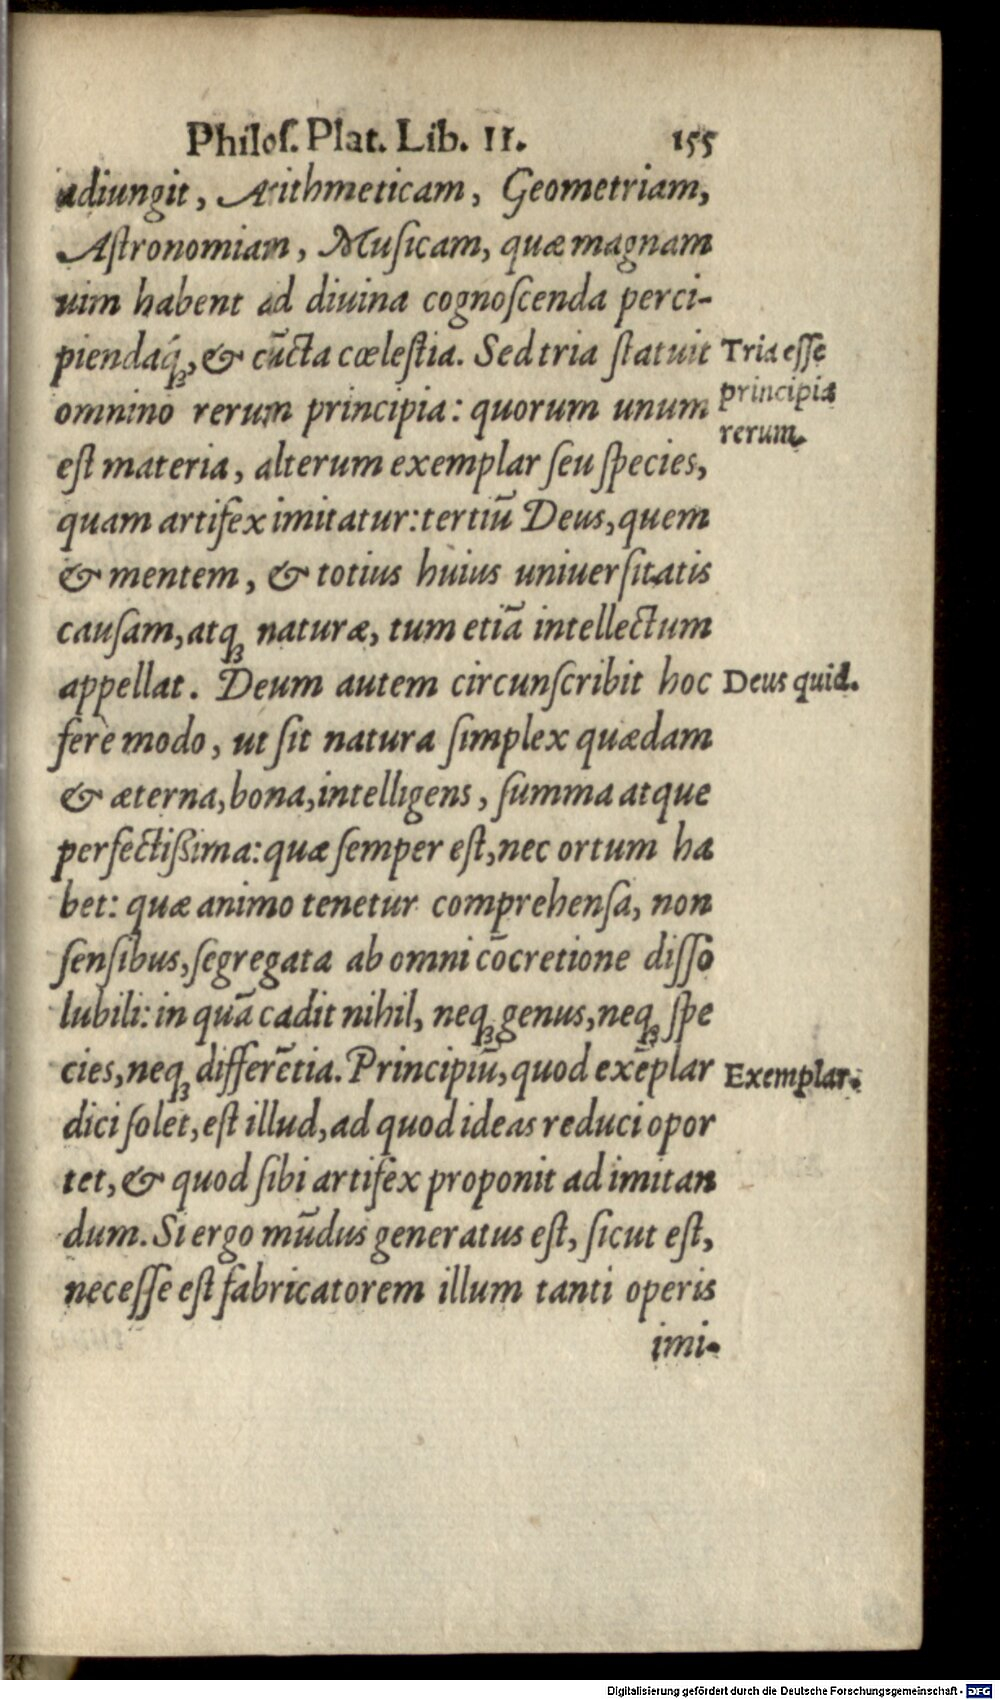 Philoſ. Plat. Lib. II. 155
adiungit, Arithmeticam, Geometriam,
Aſtronomiam, Muſicam, quæ magnam
uim habent ad diuina cognoſcenda perci-
piendaq́ꝫ, & cūcta cœleſtia. Sed tria ſtatuit
Tria eſſe
principia
rerum.
omnino rerum principia: quorum unum
eſt materia, alterum exemplar ſeu ſpecies,
quam artifex imitatur: tertiū Deus, quem
& mentem, & totius huius uniuerſitatis
cauſam, atqꝫ naturæ, tum etiā intellectum
appellat. Deum autem circunſcribit hoc
Deus quid.
ferè modo, ut ſit natura ſimplex quædam
& æterna, bona, intelligens, ſumma atque
perfectißima: quæ ſemper eſt, nec ortum ha
bet: quæ animo tenetur comprehenſa, non
ſenſibus, ſegregata ab omni cōcretione diſſo
lubili: in quā cadit nihil, neqꝫ genus, neqꝫ ſpe
cies, neqꝫ differētia. Principiū, quod exēplar
Exemplar.
dici ſolet, eſt illud, ad quod ideas reduci opor
tet, & quod ſibi artifex proponit ad imitan
dum. Si ergo mūdus generatus eſt, ſicut eſt,
neceſſe eſt fabricatorem illum tanti operis
imi-
Digitalisierung gefördert durch die Deutsche Forschungsgemeinschaft - DFG